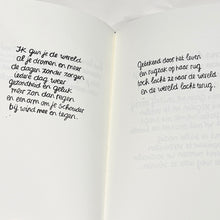 Ik gun je de wereld
Al je dromen en meer
de dagen zonder zorgen
iedere dag weer
gezondheid en geluk
meer zon dan regen
en een arm om je schouder
bij wind mee en tegen.
Getekend door het leven
een rugzak op haar rug
toch lachte ze naar de wereld
en de wereld lachte terug.